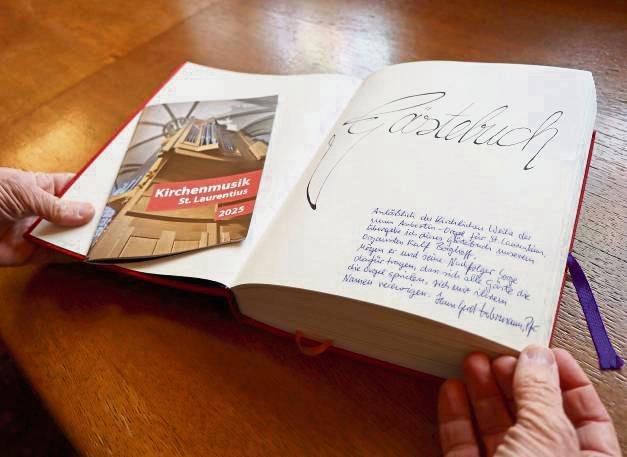 Kirchenmusik
St. Laurentius
2025
Gästebuch
Anläßlich der Kirchlichen Weihe der
neuen Orgel für St. Laurentius,
übergebe ich dieses Gästebuch unserem
Organisten Ralf
Mögen er und seine Nachfolger Sorge
dafür tragen, dass sich alle Gäste die
die Orgel spielen, sich mit ihrem
Namen verewigen.